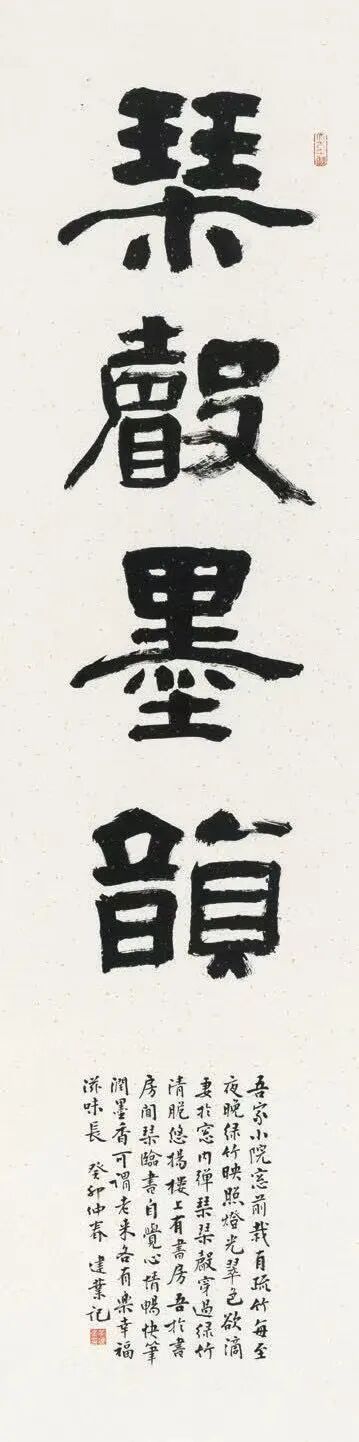 琹
聲
墨
韻
吾家小院窓前栽有疏竹每至
夜晚绿竹映照燈光翠色欲滴
妻扵窓内弹琹琹聲穿過绿竹
清脆悠揚樓上有書房吾扵書
房聞琹臨書自覺心情暢快筆
潤墨香可謂老来各有樂幸福
滋味長 癸卯仲春 建業记